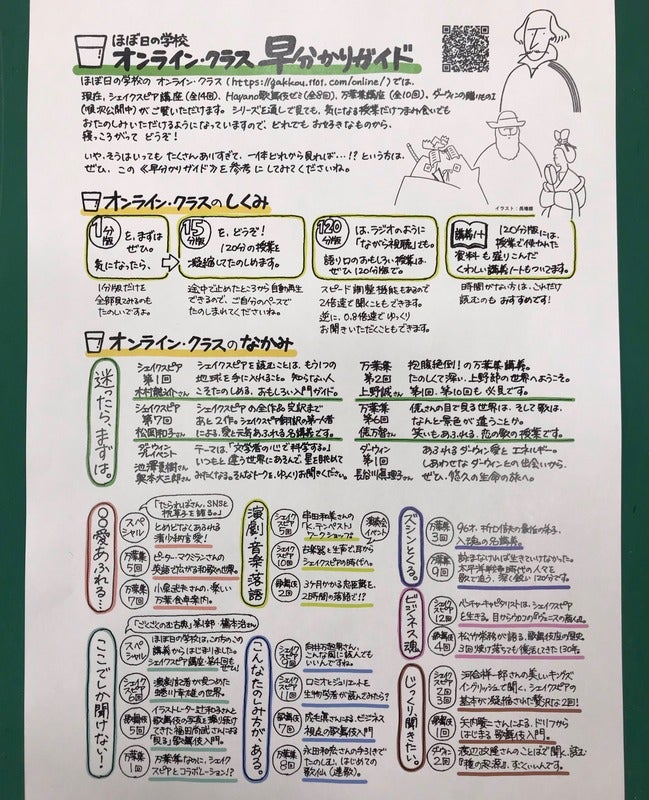 ほぼ日の学校
オンライン・クラス 早分かりガイド
ほぼ日の学校の オンライン・クラス (https://gakkou.1101.com/online/) では、
現在、シェイクスピア講座(全14回)、Hayano歌舞伎ゼミ(全8回)、万葉集講座(全10回)、ダーウィンの贈りもの I
(順次公開中) がご覧いただけます。シリーズを通して見ても、気になる授業だけつまみ食いでも
おたのしみいただけるようになっていますので、どれでもお好きなものから、
寝っころがって どうぞ!
いや、そうはいっても たくさんありすぎて、一体どれから見れば…!? という方は、
ぜひ、この《早分かりガイド》を参考に してみてくださいね。
イラスト:長場雄
オンライン・クラスのしくみ
1分版 を、まずは
ぜひ。
気になったら、
1分版だけを
全部見てみるのも
たのしいですよ。
15分版 を、どうぞ!
120分の授業を
凝縮してたのしめます。
途中で止めたところから自動再生
できるので、ご自分のペースで
たのしまれてくださいね。
120分版 は、ラジオのように
「ながら視聴」でも。
語り口のおもしろい授業は
ぜひ120分版で。
スピード調整機能もあるので
2倍速で聞くこともできます。
逆に、0.8倍速でゆっくり
お聞きいただくこともできます。
講義ノート 120分版には、
授業で使われた
資料も盛りこんだ
くわしい講義ノートもついてます。
時間がない方は、これだけ
読むのも おすすめです!
オンライン・クラスのなかみ
迷ったら、まずは。
シェイクスピア
第1回
木村龍之介さん
シェイクスピアを読むことは、もう1つの
地球を手に入れること。知らない人
こそたのしめる、おもしろい入門ガイド。
シェイクスピア
第7回
松岡和子さん
シェイクスピアの全作品完訳まで
あと2作。シェイクスピア翻訳の第一人者
による、愛と元気あふれる名講義です。
ダーウィン
プレイベント
池澤夏樹さん
奥本大三郎さん
テーマは、「文学者の心で科学する。」
いつもと違う世界にあそんで、星を眺めて
みたくなる。そんなトークを、ゆっくりお聞きください。
万葉集
第2回
上野誠さん
抱腹絶倒!の万葉集講義。
たのしくて深い、上野節の世界へようこそ。
第1回、第10回も必見です。
万葉集
第6回
俵万智さん
俵さんの目で見る世界は、そして歌は、
なんと景色が違うことか。
笑いもあふれる、恋の歌の授業です。
ダーウィン
第1回
長谷川眞理子さん
あふれるダーウィン愛とエネルギー。
しあわせなダーウィンとの出会いから、
ぜひ、悠久の生命の旅へ。
○○愛あふれる…
スペシャル
「たらればさん、SNSと
枕草子を語る。」
とめどなくあふれる
清少納言愛!
万葉集
5回
ピーター・マクミランさんの
英語で広がる和歌の世界。
万葉集
7回
小泉武夫さんの、楽しい
万葉食卓案内。
演劇 音楽 落語
シェイクスピア
5回
串田和美さんの
「K.テンペスト」
ワークショップ
演劇会イベント
シェイクスピア
10回
古楽器と生声で、耳から
シェイクスピアの時代へ。
歌舞伎
2回
3ヶ月かかる忠臣蔵を、
2時間の落語で!?
ズシンとくる。
万葉集
3回
96才、折口信夫の最後の弟子、
入魂の名講義。
万葉集
9回
詠まなければ生きていけなかった。
太平洋戦争時代の人々を
歌で追う、深く鋭い120分です。
ビジネス魂
シェイクスピア
12回
ベンチャーキャピタリストは、シェイクスピア
を生きる。目からウロコの『ヴェニスの商人』。
歌舞伎
4回
松竹常務が語る、歌舞伎座の歴史
3回焼け落ちても復活してきた130年。
ここでしか聞けない!
「ごくごくのむ古典」第1部 橋本治さん
スペシャル
ほぼ日の学校は、この方のこの
講義からはじまりました。
シェイクスピア講座・第4回も
ぜひ!
シェイクスピア
6回
演劇記者が見つめた
蜷川幸雄の世界。
歌舞伎
5回
イラストレーター辻和子さんと
歌舞伎の写真を撮り続け
てきた福田尚武さんによる
「見る」歌舞伎入門。
万葉集
1回
万葉集なのに、シェイク
スピアとコラボレーション!?
こんなたのしみ方がある。
シェイクスピア
9回
向井万起男さん、
こんな風に読んでも
いいんですね。
シェイクスピア
11回
ロミオとジュリエットを
生物学者が読んでみたら?
歌舞伎
7回
成毛眞さんによる、ビジネス
視在の歌舞伎入門
万葉集
8回
永田和宏さんの手引きで
たのしむ、はじめての
歌仙(連歌)。
じっくり聞きたい。
シェイクスピア
2回
3回
河合祥一郎さんの美しいキングズ
イングリッシュで聞く、シェイクスピアの
基本が凝縮された贅沢な2回!
歌舞伎
1回
矢内賢二さんによる、ドリフから
はじまる 歌舞伎入門。
ダーウィン
2回
渡辺政隆さんのことばで聞く、読む
『種の起源』、すごいんです。